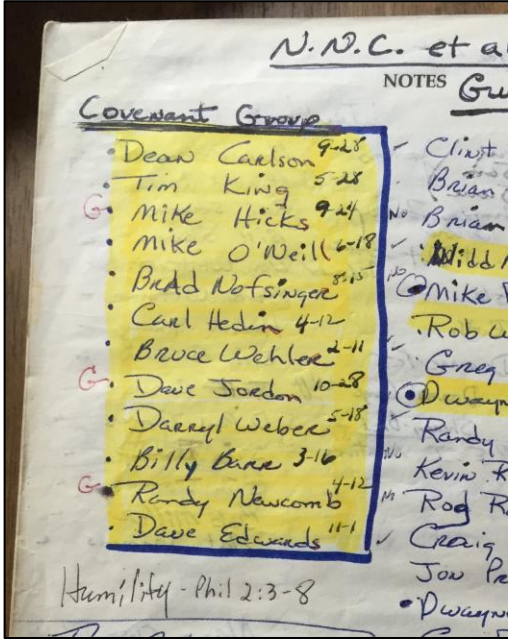 N.N.C. et al
NOTES
Covenant Group
• Dean Carlson 9-28
• Tim King 5-28
G • Mike Hicks 9-24
• Mike O'Neill 6-18
• Brad Nofsinger 8-15
• Carl Hedin 4-12
• Bruce Wehler 2-11
G • Dave Jordon 10-28
• Darryl Weber 5-18
• Billy Barr 3-16
G • Randy Newcomb 4-12
• Dave Edwards 11-1
Humility - Phil 2:3-8
✓ Clint
Brian
No Brian
✓
No Mike
Rob
✓ Greg
Dwayn
Randy
No Kevin R
No Rod R
✓ Craig
Jon Pr
• Dwayn